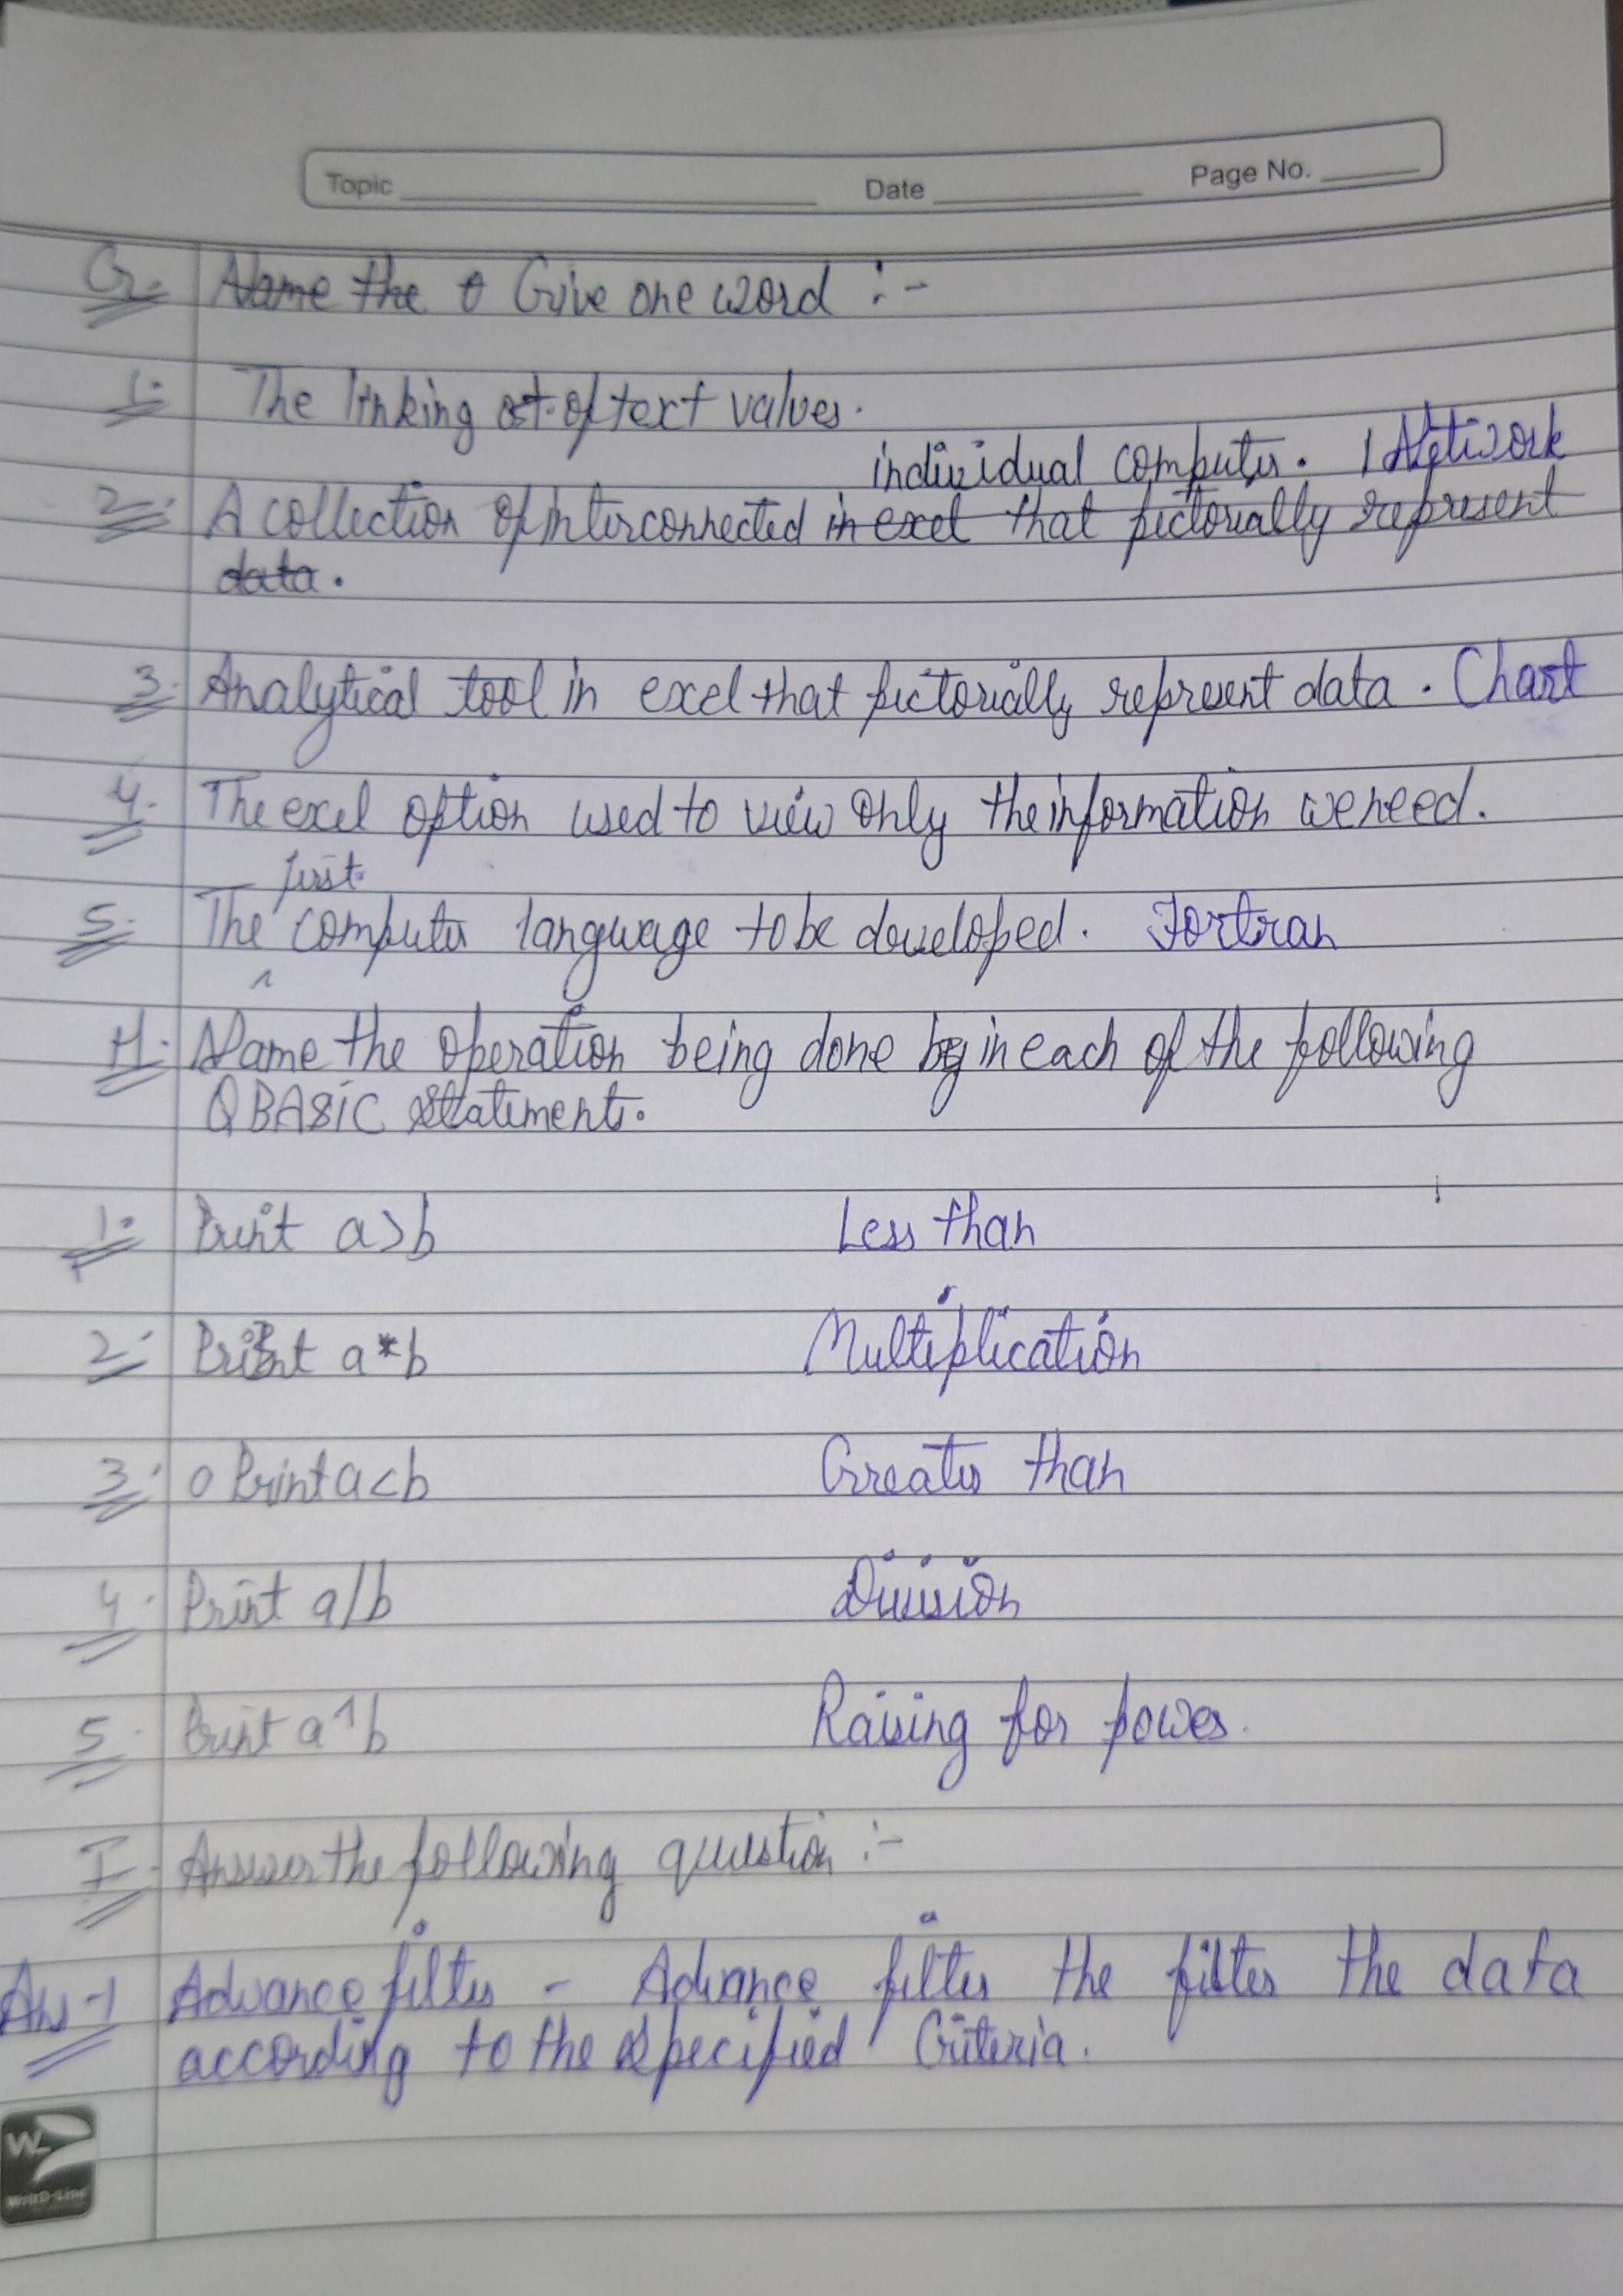 Topic Date Page No.
G. Name the Give one word :-
1. The linking of text values.
individual computer. / Network
2. A collection of interconnected in excel that pictorially represent
data.
3. Analytical tool in excel that pictorially represent data. Chart
4. The excel option used to view only the information we need.
first
5. The computer language to be developed. Fortran
H. Name the operation being done in each of the following
QBASIC Statement.
1. Print a>b Less than
2. Print a*b Multiplication
3. Print a<b Greater than
4. Print a/b Division
5. Print a^b Raising for power.
I. Answer the following question :-
Ans-1 Advance filter - Advance filter the filter the data
according to the specified Criteria.
W
WritO-Line